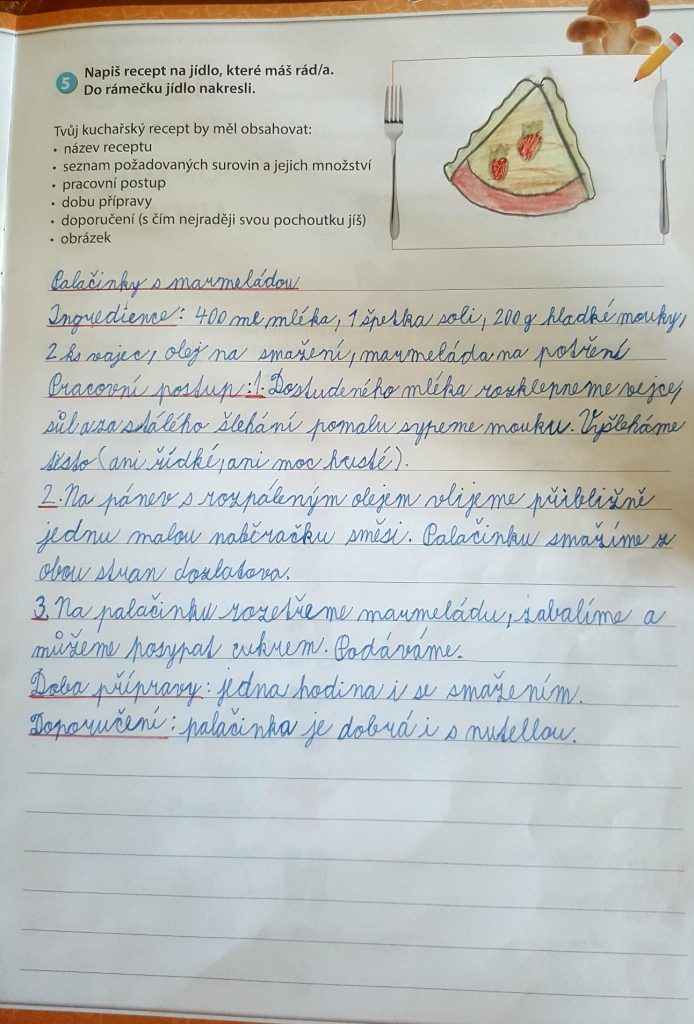 5 Napiš recept na jídlo, které máš rád/a.
Do rámečku jídlo nakresli.
Tvůj kuchařský recept by měl obsahovat:
• název receptu
• seznam požadovaných surovin a jejich množství
• pracovní postup
• dobu přípravy
• doporučení (s čím nejraději svou pochoutku jíš)
• obrázek
Palačinky s marmeládou
Ingredience: 400 ml mléka, 1 špetka soli, 200 g hladké mouky,
2 ks vajec, olej na smažení, marmeláda na potření
Pracovní postup: 1. Do studeného mléka rozklepneme vejce,
sůl a za stálého šlehání pomalu sypeme mouku. Vyšleháme
těsto (ani řídké, ani moc husté).
2. Na pánev s rozpáleným olejem vlijeme přibližně
jednu malou naběračku směsi. Palačinku smažíme z
obou stran dozlatova.
3. Na palačinku rozetřeme marmeládu, zabalíme a
můžeme posypat cukrem. Podáváme.
Doba přípravy: jedna hodina i se smažením.
Doporučení: palačinka je dobrá i s nutellou.